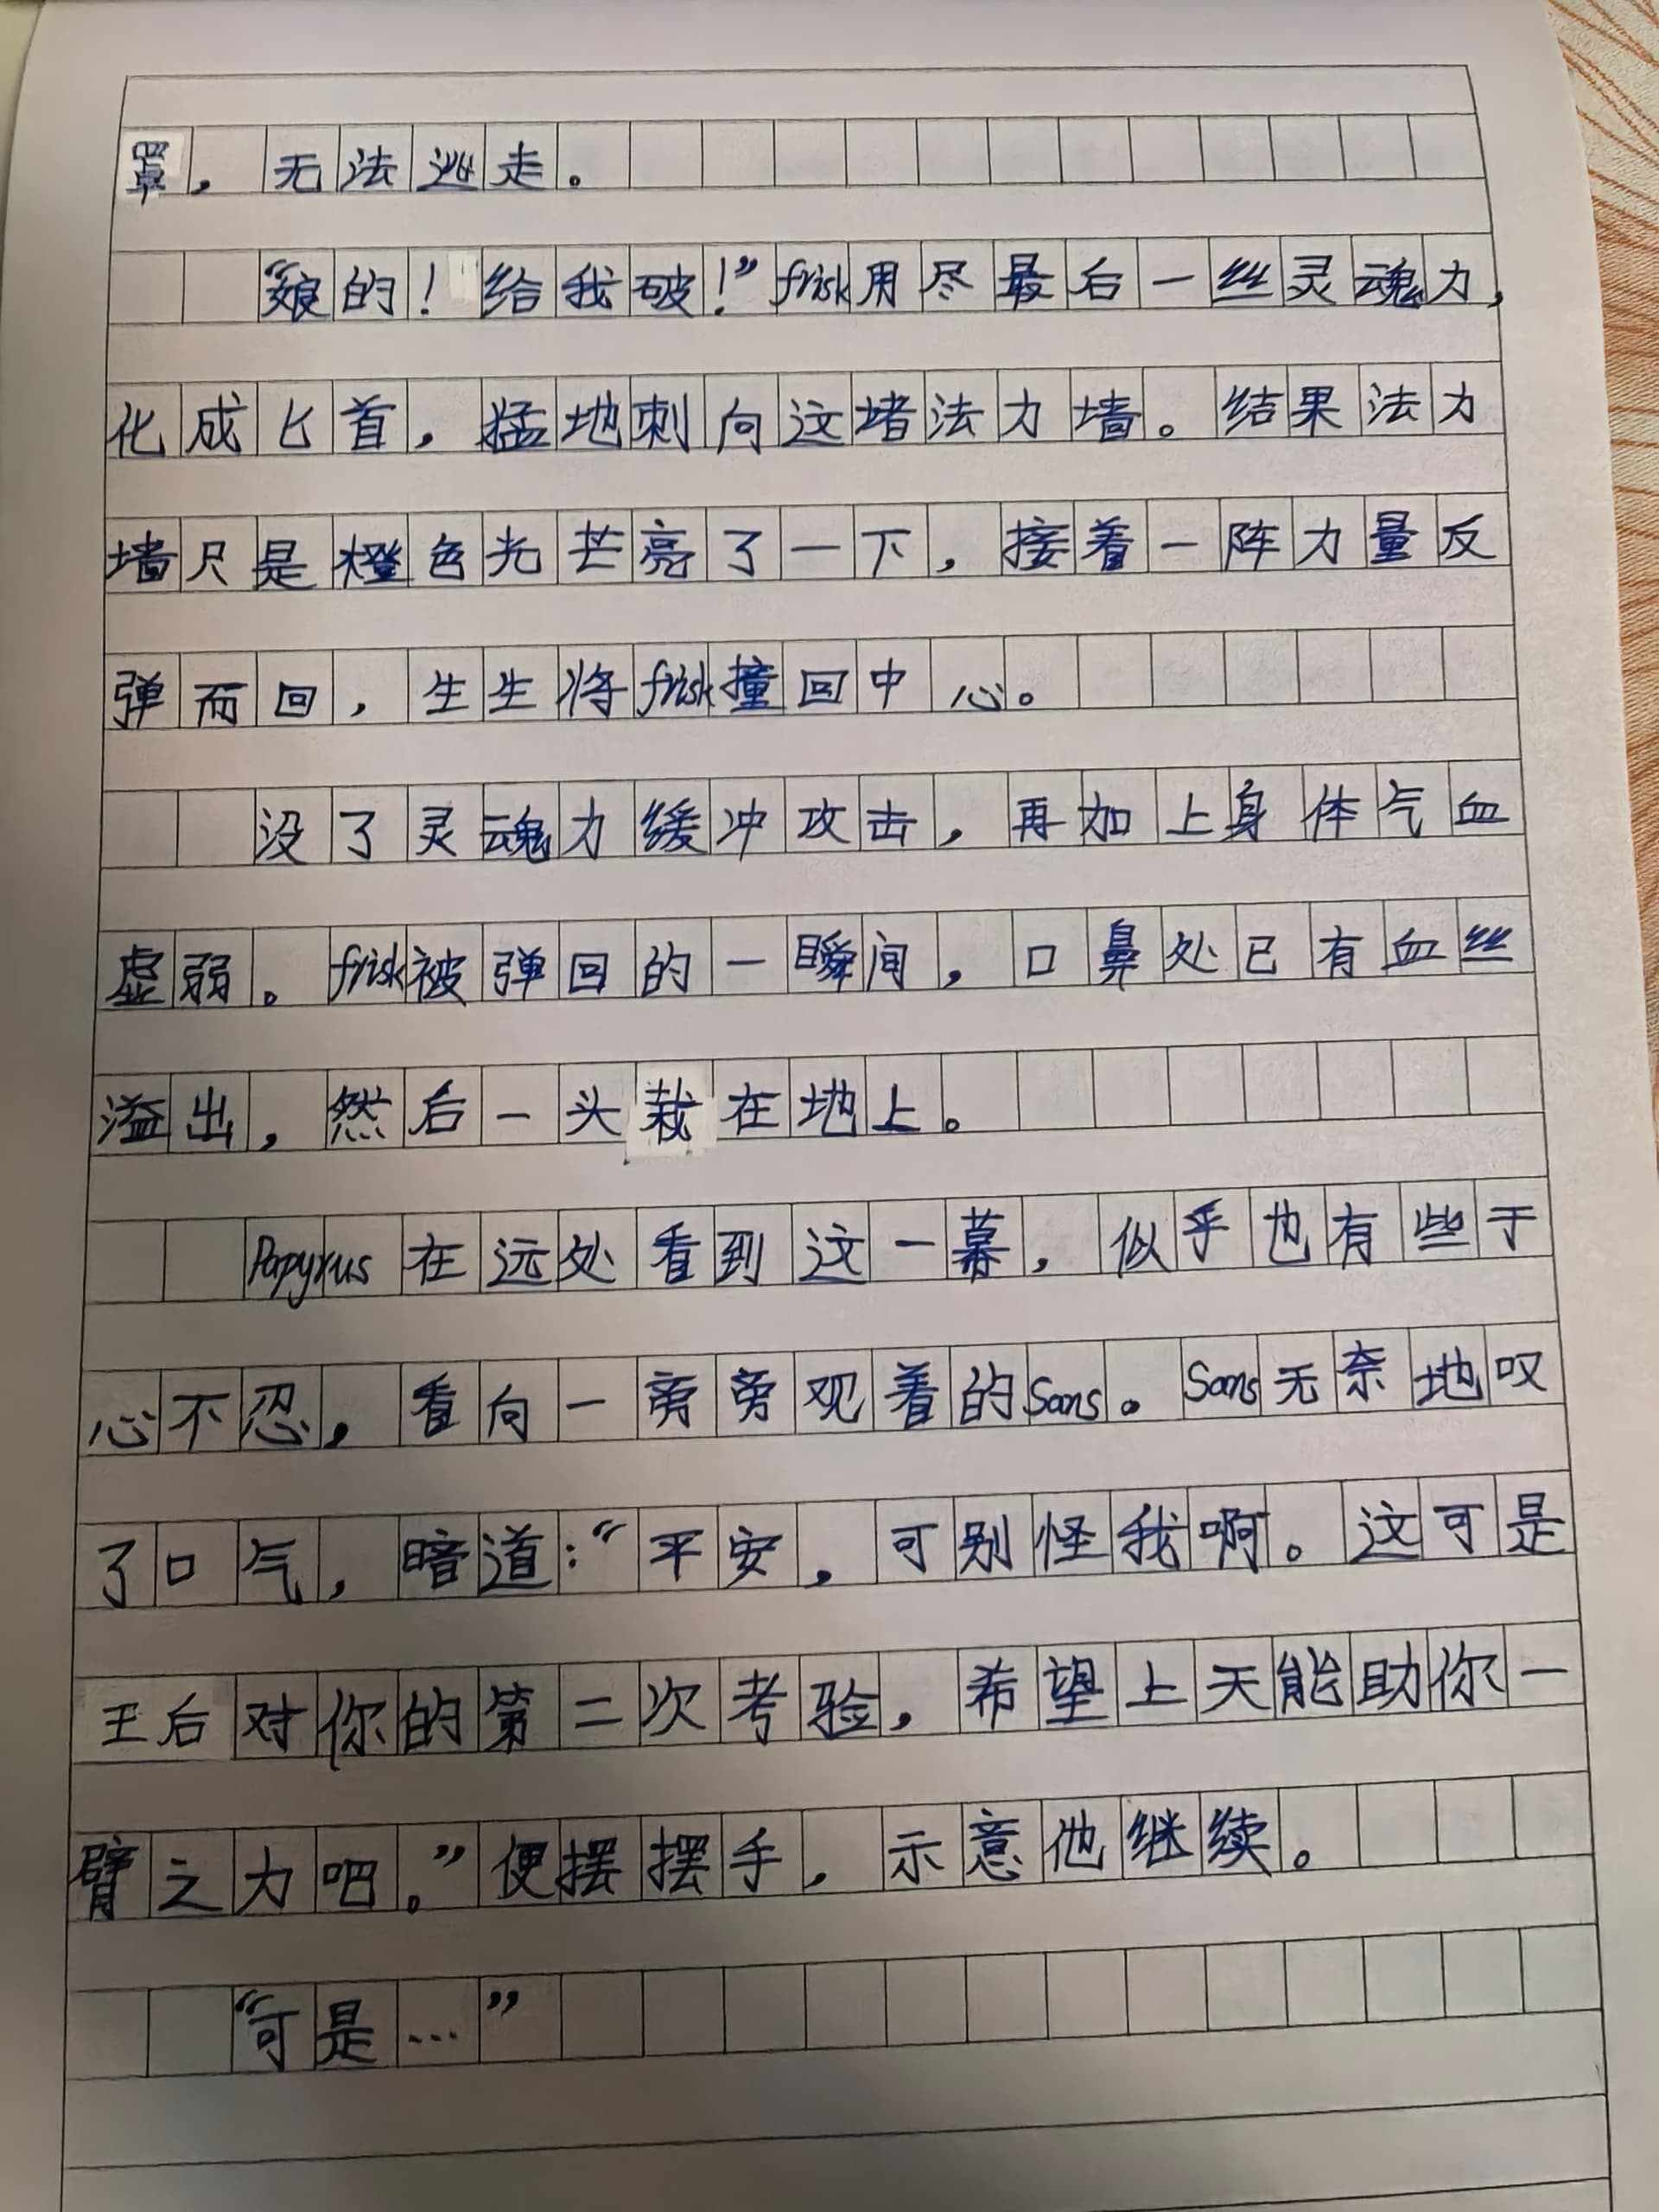 罩，无法逃走。
“娘的！给我破！”frisk用尽最后一丝灵魂力，
化成匕首，猛地刺向这堵法力墙。结果法力
墙只是橙色光芒亮了一下，接着一阵力量反
弹而回，生生将frisk撞回中心。
没了灵魂力缓冲攻击，再加上身体气血
虚弱。frisk被弹回的一瞬间，口鼻处已有血丝
溢出，然后一头栽在地上。
Papyrus在远处看到这一幕，似乎也有些于
心不忍，看向一旁旁观着的Sans。Sans无奈地叹
了口气，暗道：“平安，可别怪我啊。这可是
王后对你的第二次考验，希望上天能助你一
臂之力吧。”便摆摆手，示意他继续。
“可是…”